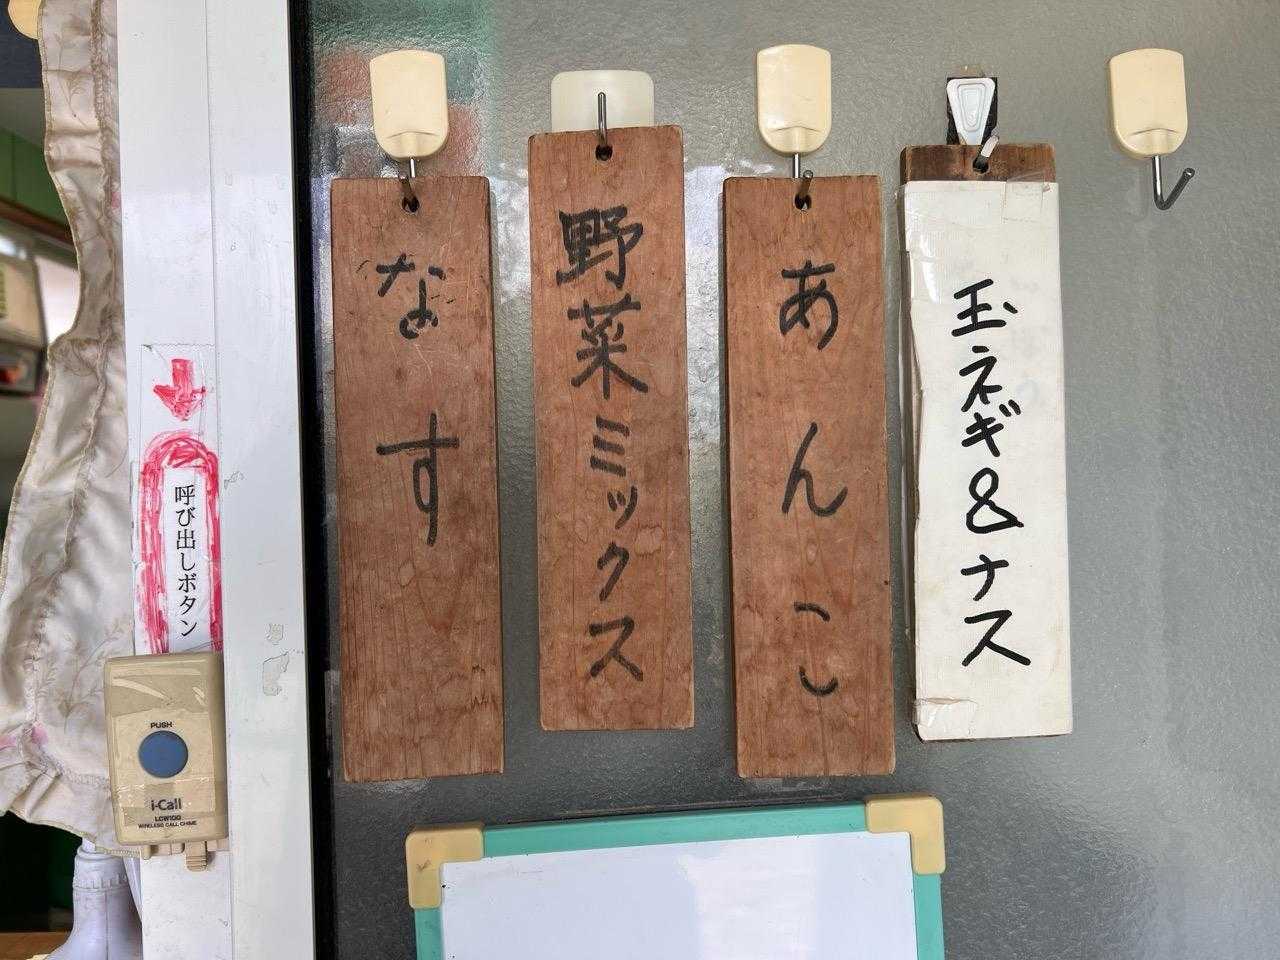 なす
野菜ミックス
あんこ
玉ネギ&ナス
呼び出しボタン
PUSH
i-Call
LCW100
WIRELESS CALL CHIME